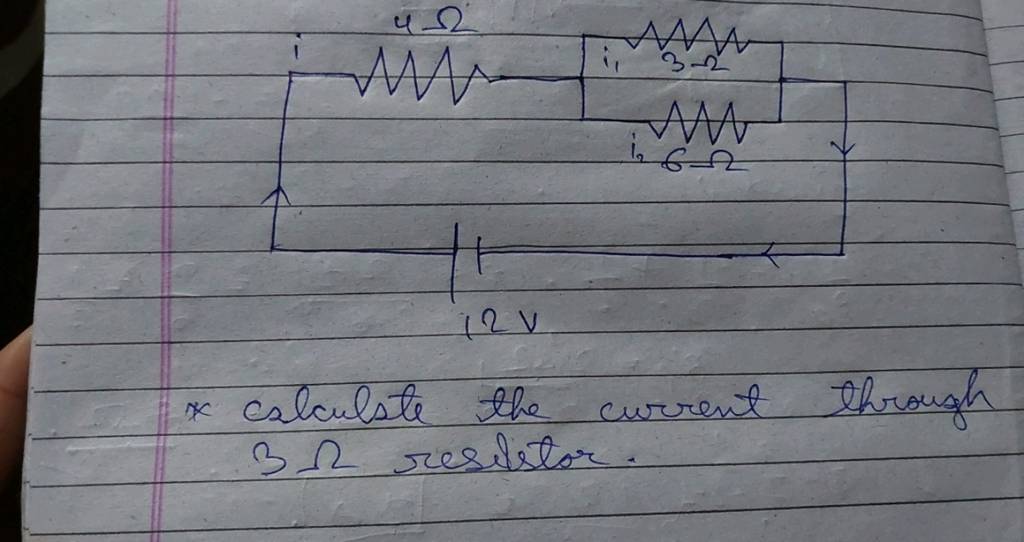 4 Ω
i
i₁ 3 Ω
i₂ 6 Ω
12 V
* calculate the current through
3 Ω resistor.